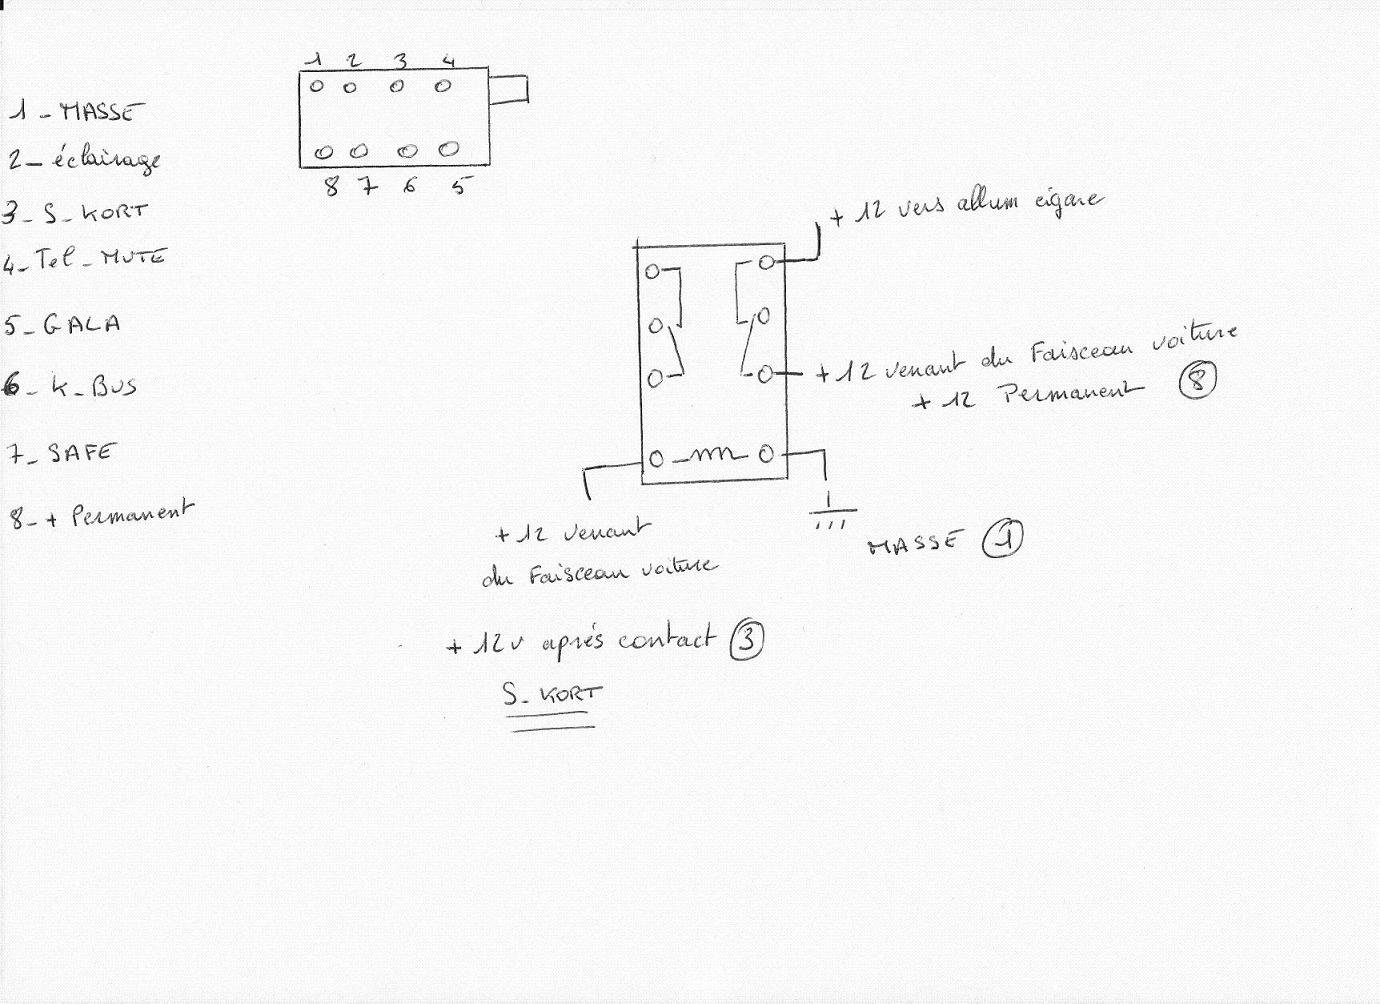 1 2 3 4
8 7 6 5
1 - MASSE
2 - éclairage
3 - S - KORT
4 - Tel - MUTE
5 - GALA
6 - K - BUS
7 - SAFE
8 - + Permanent
+ 12 vers allum cigare
+ 12 venant du Faisceau voiture
+ 12 Permanent 8
MASSE 1
+ 12 venant
du Faisceau voiture
+ 12v aprés contact 3
S - KORT